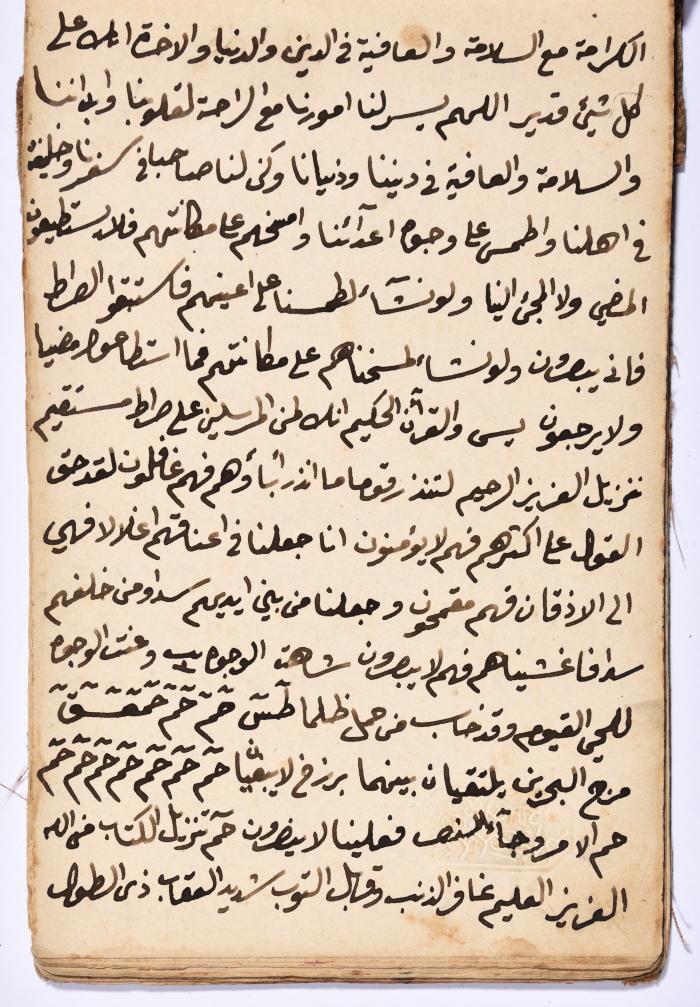 الكرامة مع السلامة والعافية في الدين والدنيا والاخرة انك على
كل شيئ قدير اللهم يسر لنا امورنا مع الراحة لقلوبنا وابداننا
والسلامة والعافية في ديننا ودنيانا وكن لنا صاحبا في سفرنا وخليفة
في اهلنا واطمس على وجوه اعدآئنا وامسخهم على مكانتهم فلا يستطيعون
المضي ولا المجئ الينا ولو نشآء لطمسنا على اعينهم فاستبقوا الصراط
فانى يبصرون ولو نشاء لمسخناهم على مكانتهم فما استطاعوا مضيا
ولا يرجعون يس والقرآن الحكيم انك لمن المرسلين على صراط مستقيم
تنزيل العزيز الرحيم لتنذر قوما ما انذر أباؤهم فهم غافلون لقد حق
القول على اكثرهم فهم لا يؤمنون انا جعلنا في اعناقهم اغلالا فهي
الى الاذقان فهم مقمحون وجعلنا من بين ايديهم سدا ومن خلفهم
سدا فاغشيناهم فهم لا يبصرون شاهت الوجوه وعنت الوجوه
للحي القيوم وقد خاب من حمل ظلما طسٓ حٓمٓ حٓمٓ عٓسٓقٓ
مرج البحرين يلتقيان بينهما برزخ لا يبغيان حٓمٓ حٓمٓ حٓمٓ حٓمٓ حٓمٓ حٓمٓ حٓمٓ
حم الامر وجآء النصر فعلينا لا ينصرون حٓمٓ تنزيل الكتاب من الله
العزيز العليم غافر الذنب وقابل التوب شديد العقاب ذى الطول